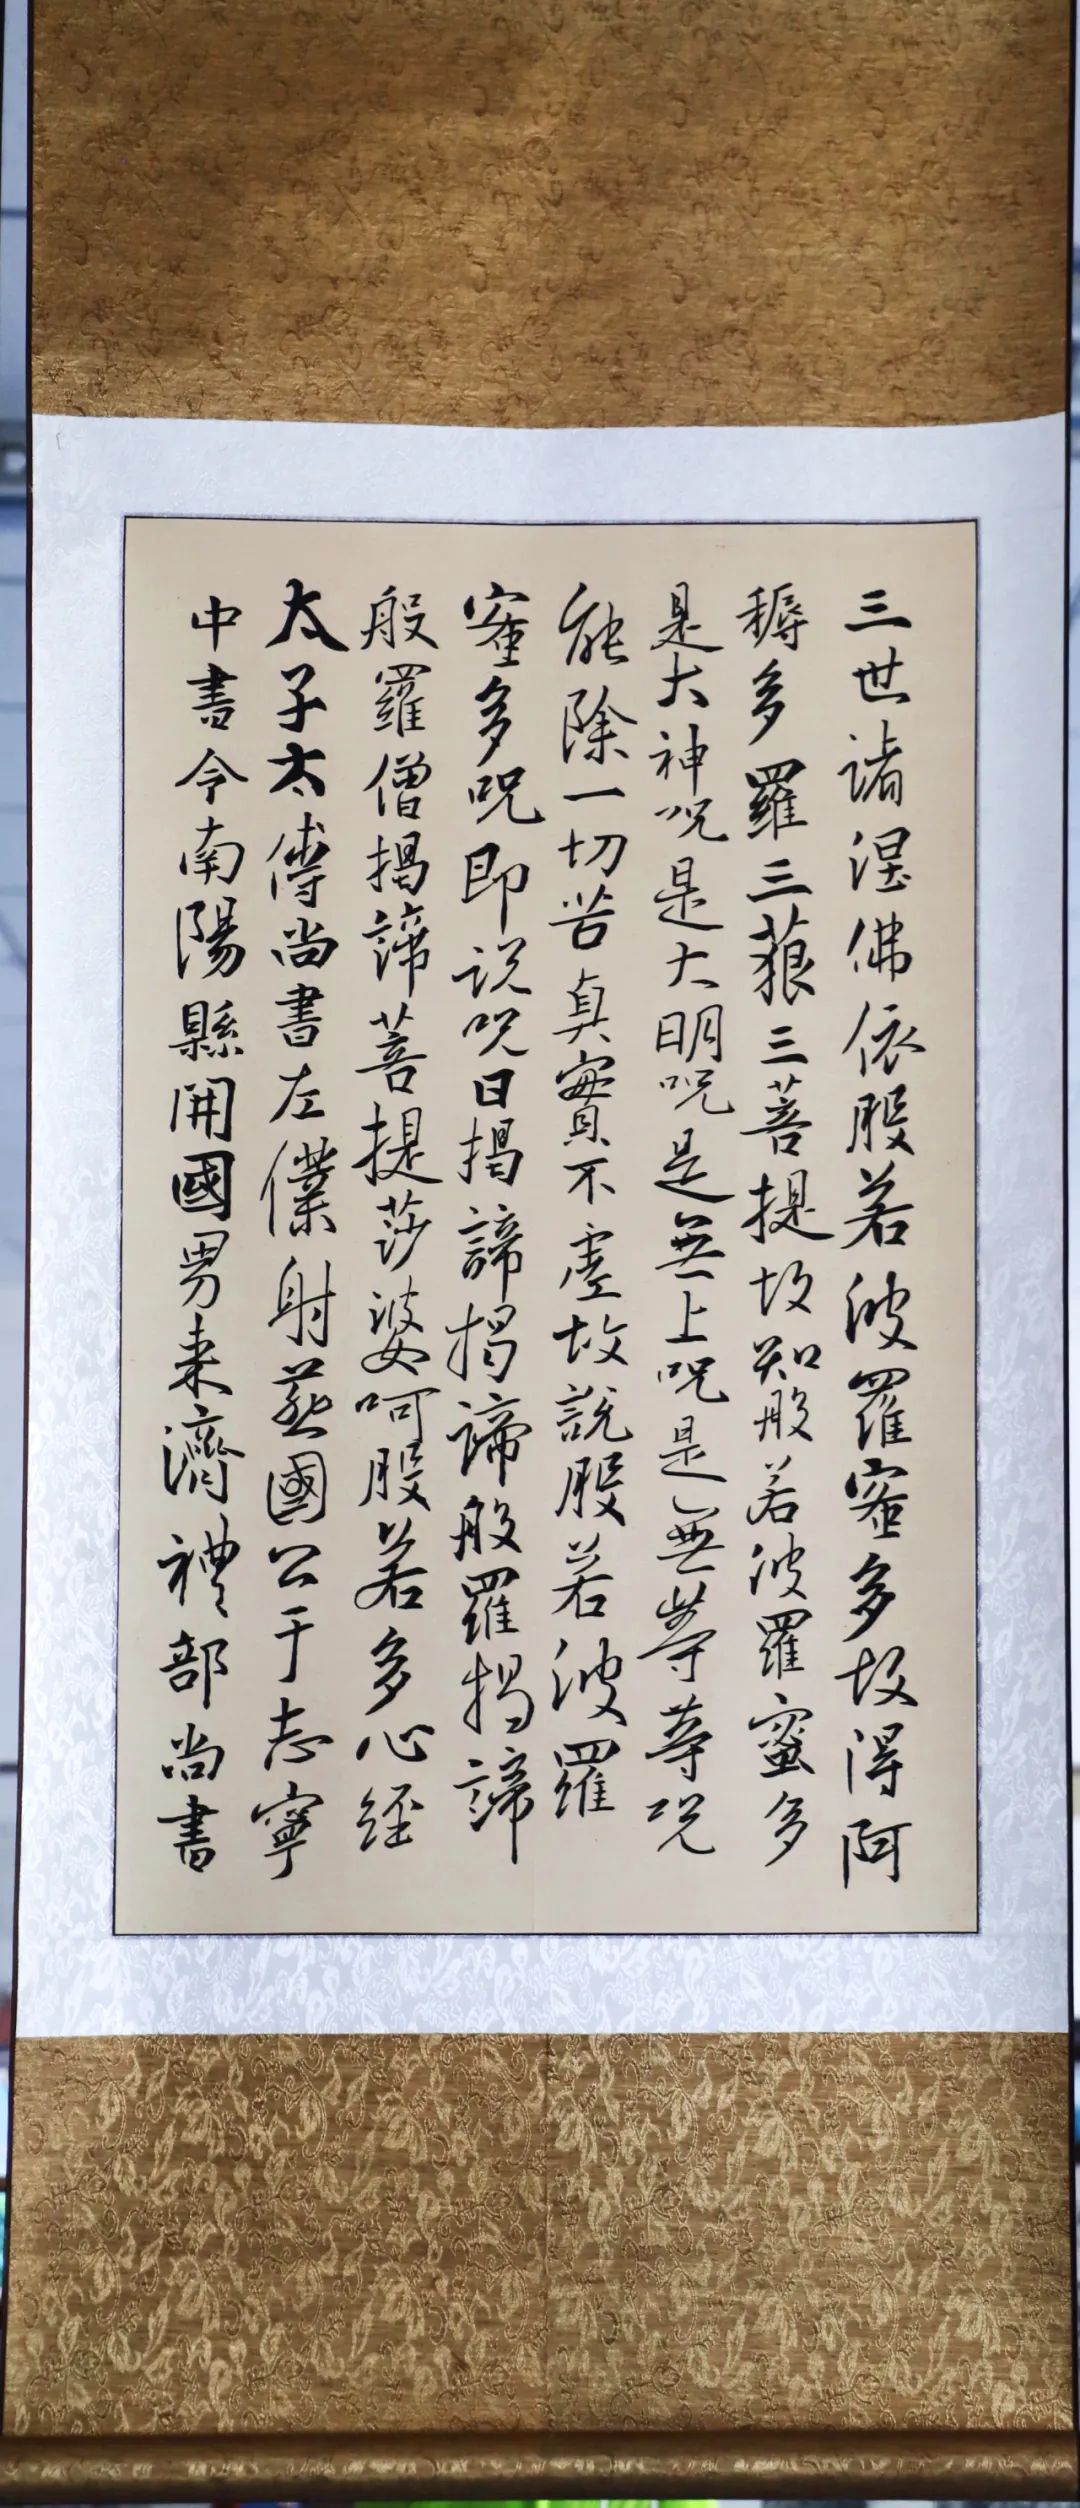 三世諸涅佛依般若波羅蜜多故得阿
耨多羅三藐三菩提故知般若波羅蜜多
是大神呪是大明呪是無上呪是無等等呪
能除一切苦真實不虛故說般若波羅
蜜多呪即说呪曰揭諦揭諦般羅揭諦
般羅僧揭諦菩提莎婆呵般若多心經
太子太傅尚書左僕射燕國公于志寧
中書令南陽縣開國男来濟禮部尚書